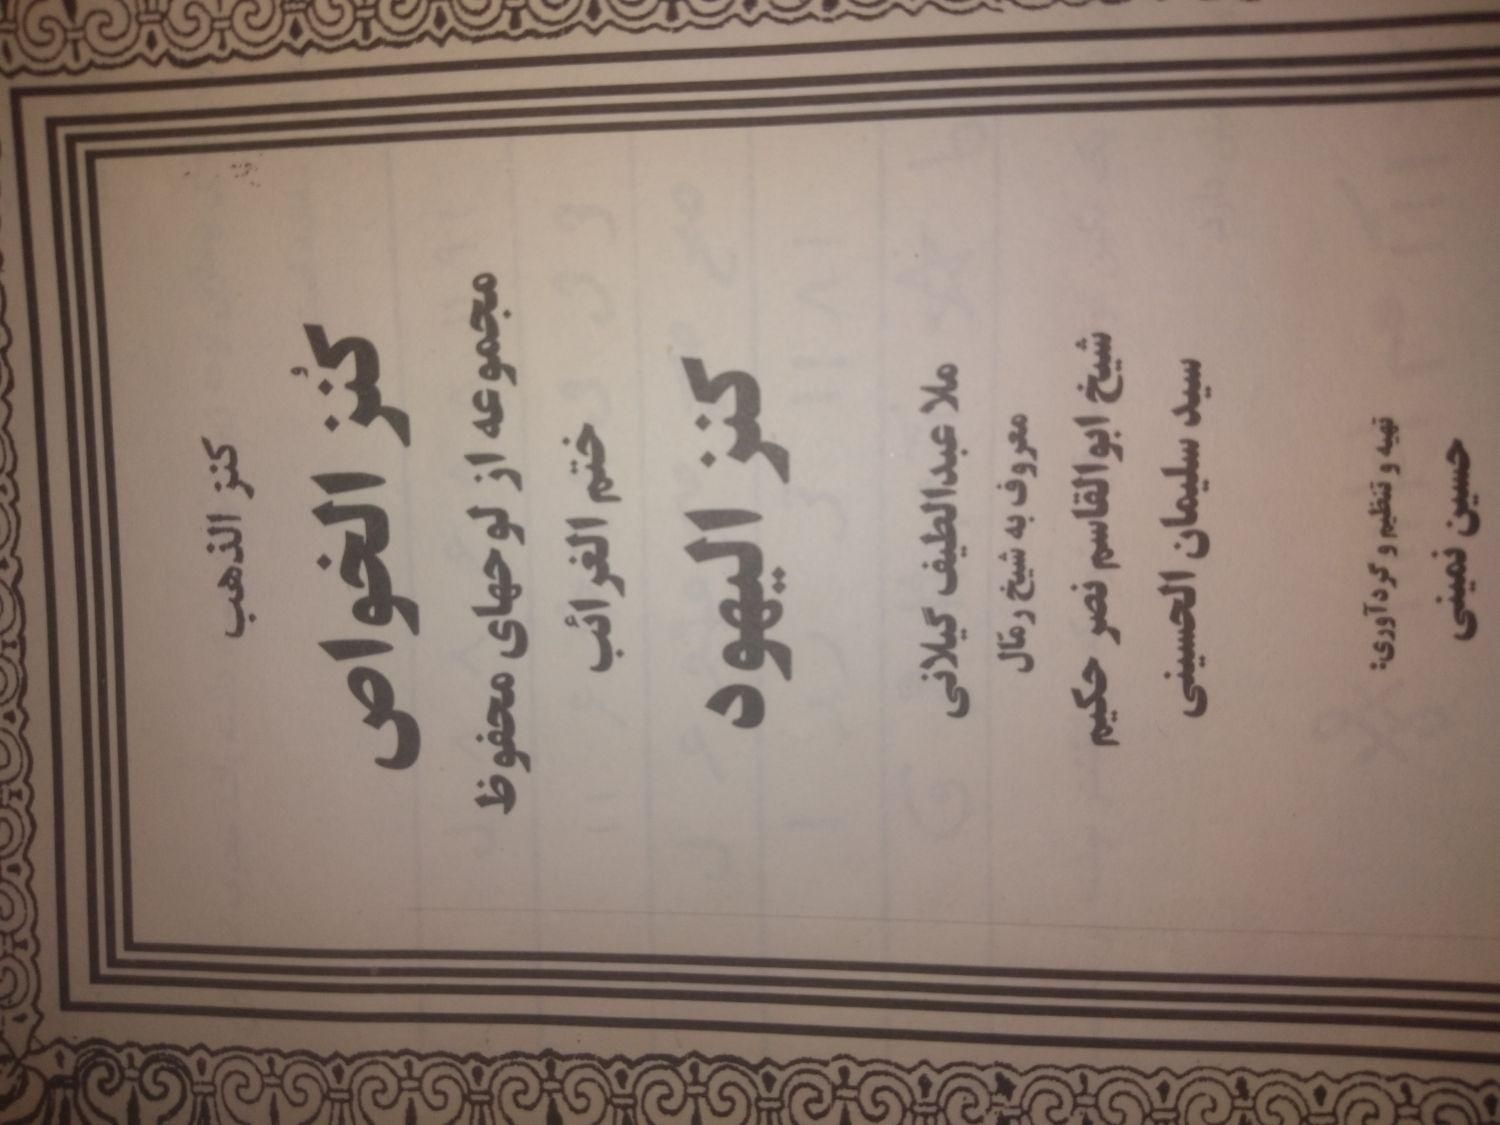 کنز الذهب
کُنز الخواص
مجموعه از لوحهای محفوظ
ختم الغرائب
کنز الیهود
ملا عبدالطیف گیلانی
معروف به شیخ رمّال
شیخ ابوالقاسم نصر حکیم
سید سلیمان الحسینی
تهیه و تنظیم و گردآوری:
حسین نمینی